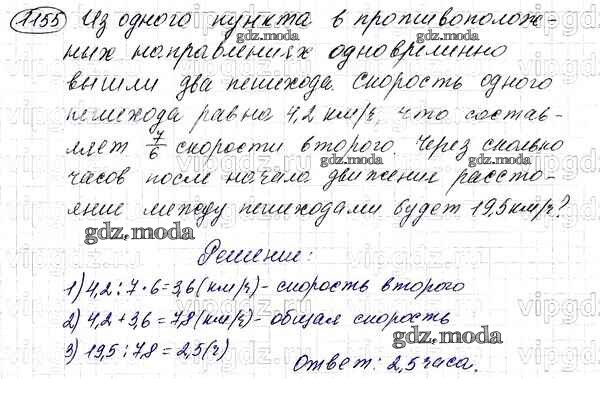 1155 Из одного пункта в противополож-
ных направлениях одновременно
вышли два пешехода. Скорость одного
пешехода равна 4,2 км/ч, что состав-
ляет 7/6 скорости второго. Через сколько
часов после начала движения рассто-
яние между пешеходами будет 19,5 км/ч?
Решение:
1) 4,2 : 7 • 6 = 3,6 (км/ч) - скорость второго
2) 4,2 + 3,6 = 7,8 (км/ч) - общая скорость
3) 19,5 : 7,8 = 2,5 (ч)
Ответ: 2,5 часа.
gdz.moda
gdz.moda
gdz.moda
gdz.moda
gdz.moda
gdz.moda
gdz.moda